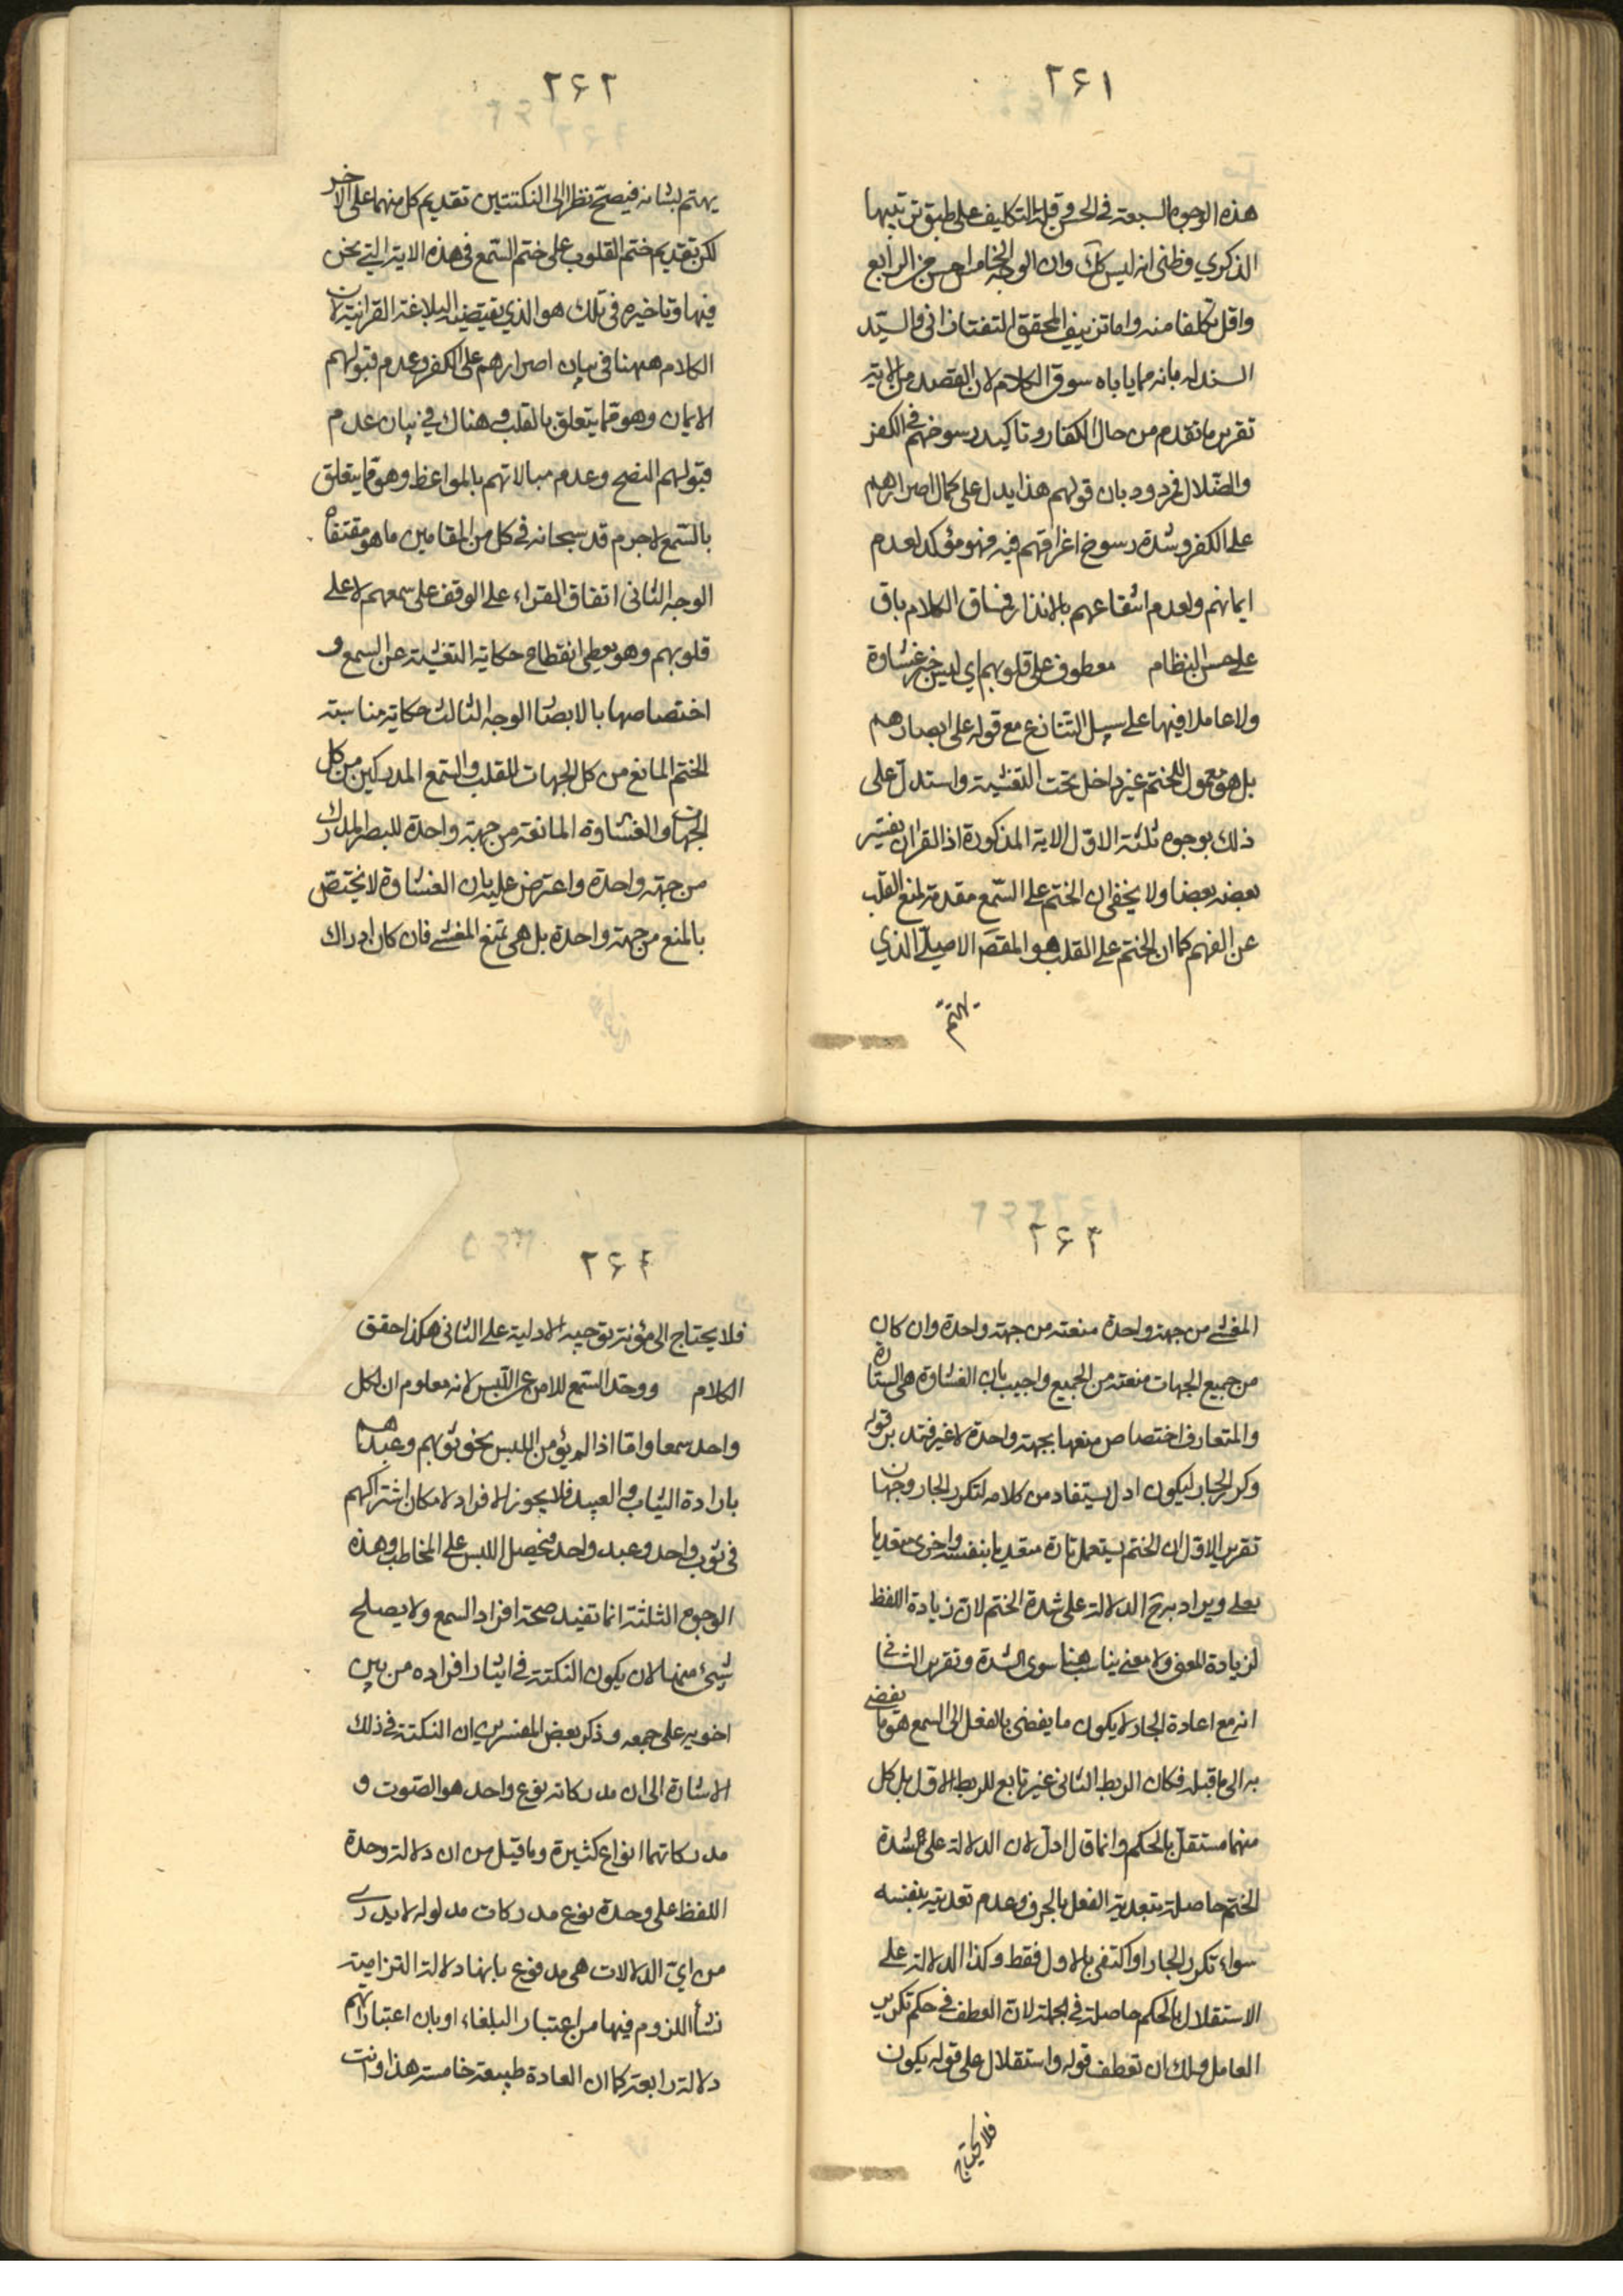 ٢٤١
هذه الوجوه السبعة في الحسن وقلة التكليف على طبق ترتيبها
الذكري وظني انه ليس كك وان الوجه الخامس احسن من الرابع
واقل تكلفا منه واما تزييف المحقق التفتازاني والسيد
السند له بانه مما ياباه سوق الكلام لان القصد من الاية
تقرير ما تقدم من حال الكفار وتاكيد رسوخهم في الكفر
والضلال فمردود بان قولهم هذا يدل على كمال اصرارهم
على الكفر وشدة رسوخ اغراقهم فيه فهو مؤكد لعدم
ايمانهم ولعدم انتفاعهم بالانذار فمساق الكلام باق
على حسن النظام معطوف على قلوبهم اي ليس خبر غشاوة
ولا عاملا فيها على سبيل التنازع مع قوله على ابصارهم
بل هو معمول للختم غير داخل تحت التغشية واستدل على
ذلك بوجوه ثلثة الاول الاية المذكورة اذ القران يفسر
بعضه بعضا ولا يخفى ان الختم على السمع مقدمة لمنع القلب
عن الفهم كما ان الختم على القلب هو المقصد الاصيل الذي
يهتم
٢٤٢
يهتم بشانه فيصح نظرا الى النكتتين تقديم كل منهما على الاخر
لكن تقديم ختم القلوب على ختم السمع في هذه الاية التي نحن
فيها وتاخيره في تلك هو الذي يقتضيه البلاغة القرانية لان
الكلام ههنا في بيان اصرارهم على الكفر وعدم قبولهم
الايمان وهو مما يتعلق بالقلب وهناك في بيان عدم
قبولهم النصح وعدم مبالاتهم بالمواعظ وهو مما يتعلق
بالسمع لا جرم قد سبحانه في كل من المقامين ما هو مقتضاه
الوجه الثاني اتفاق القراء على الوقف على سمعهم لا على
قلوبهم وهو يعطي انقطاع حكاية التغشية عن السمع و
اختصاصها بالابصار الوجه الثالث حكاية مناسبة
الختم المانع من كل الجهات للقلب والسمع المدركين من كل
الجهات والغشاوة المانعة من جهة واحدة للبصر المدرك
من جهة واحدة واعترض عليه بان الغشاوة لا تختص
بالمنع من جهة واحدة بل هي تمنع المغشي فان كان ادراك
٢٤٣
المغشي من جهة واحدة منعته من جهة واحدة وان كان
من جميع الجهات منعته من الجميع واجيب بان الغشاوة هي الستارة
والمتعارف اختصاص منعها بجهة واحدة لا غير فتدبر قوله
وكرر الجار ليكون ادل يستفاد من كلامه لتكرر الجار وجهان
تقرير الاول ان الختم يستعمل تارة متعديا بنفسه واخرى متعديا
بعلى ويراد به ح الدلالة على شدة الختم لان زيادة اللفظ
لزيادة المعنى ولا معنى يناسب هنا سوى الشدة وتقرير الثاني
انه مع اعادة الجار لا يكون ما يفضي بالفعل الى السمع هو ما يفضي
به الى ما قبله فكان الربط الثاني غير تابع للربط الاول بل كل
منهما مستقل بالحكم وانما قال ادل لان الدلالة على شدة
الختم حاصلة بتعدية الفعل بالحرف وعدم تعديته بنفسه
سواء تكرر الجار او اكتفى بالاول فقط وكذا الدلالة على
الاستقلال بالحكم حاصلة في الجملة لان العطف في حكم تكرير
العامل ولك ان تعطف قوله واستقلال على قوله يكون
فلا يحتاج
٢٤٤
فلا يحتاج الى مؤنة توجيه الادلية على الثاني هكذا حقق
الكلام ووحد السمع للامن عن اللبس لانه معلوم ان لكل
واحد سمعا واما اذا لم يؤمن اللبس نحو ثوبهم وعبدهم
بارادة الثياب والعبيد فلا يجوز الافراد لامكان اشتراكهم
في ثوب واحد وعبد واحد فيحصل اللبس على المخاطب وهذه
الوجوه الثلثة انما تفيد صحة افراد السمع ولا يصلح
شيء منها لان يكون النكتة في ايثار افراده من بين
اخويه على جمعه وذكر بعض المفسرين ان النكتة في ذلك
الاشارة الى ان مدركاته نوع واحد هو الصوت و
مدركاتهما انواع كثيرة وما قيل من ان دلالة وحدة
اللفظ على وحدة نوع مدركات مدلوله لا يدرى
من اي الدلالات هي مدفوع بانها دلالة التزامية
نشأ اللزوم فيها من اعتبار البلغاء او بان اعتباراتهم
دلالة رابعة كما ان العادة طبيعة خامسة هذا وانت